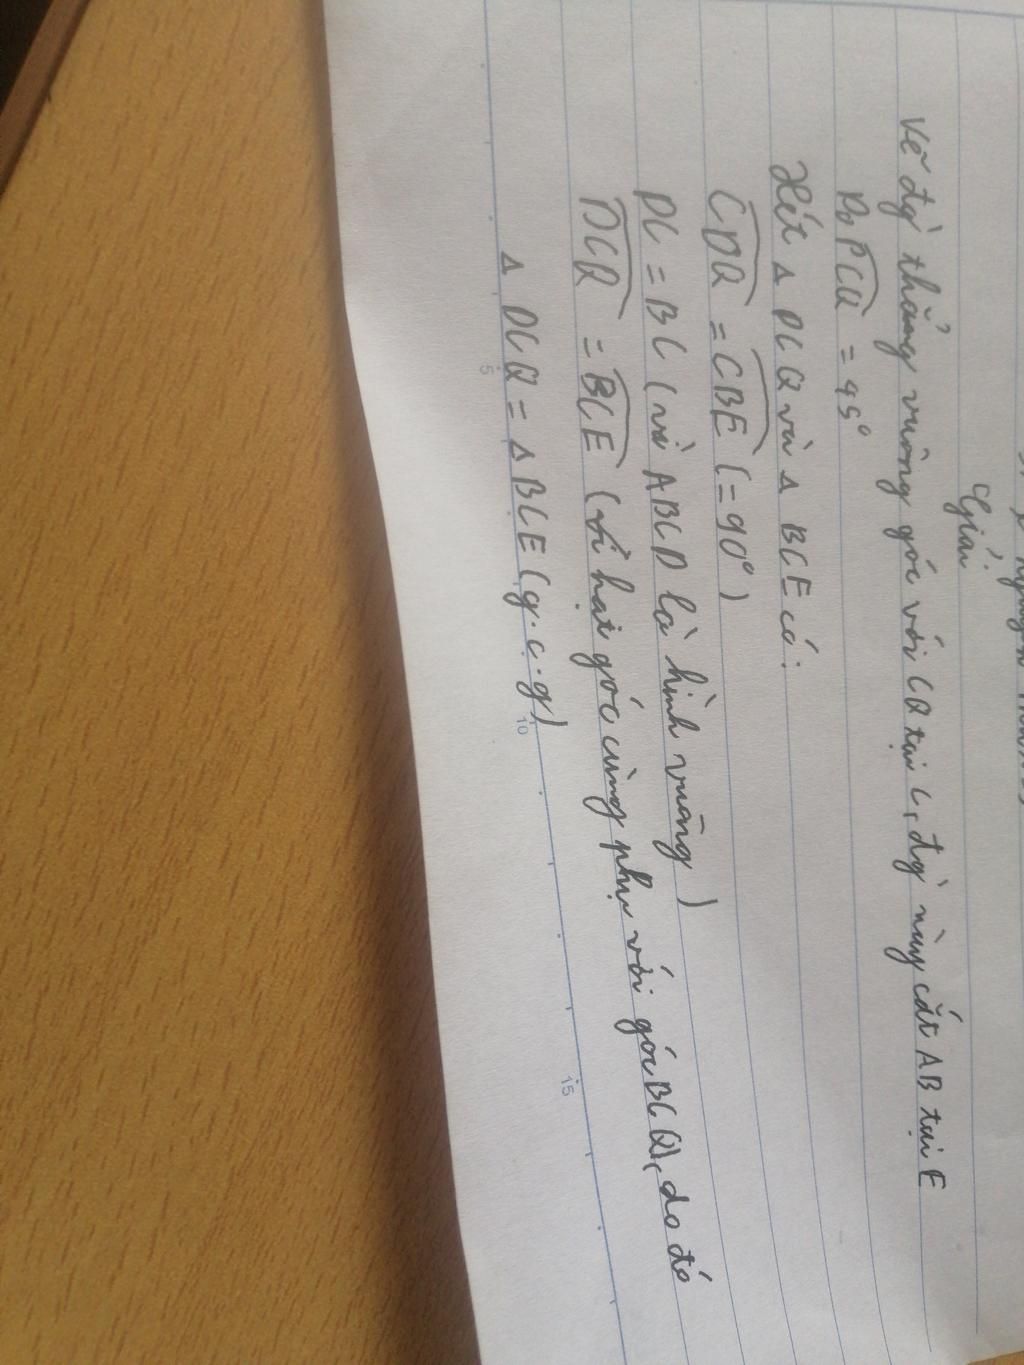 Giải
Vẽ đg` thẳng vuông góc với CQ tại C, đg` này cắt AB tại E
Do PCQ = 45°
Xét Δ DCQ và Δ BCE có:
CDQ = CBE (= 90°)
DC = BC (vì ABCD là hình vuông)
DCQ = BCE (vì hai góc cùng phụ với góc BCQ), do đó
Δ DCQ = Δ BCE (g.c.g)
5
10
15